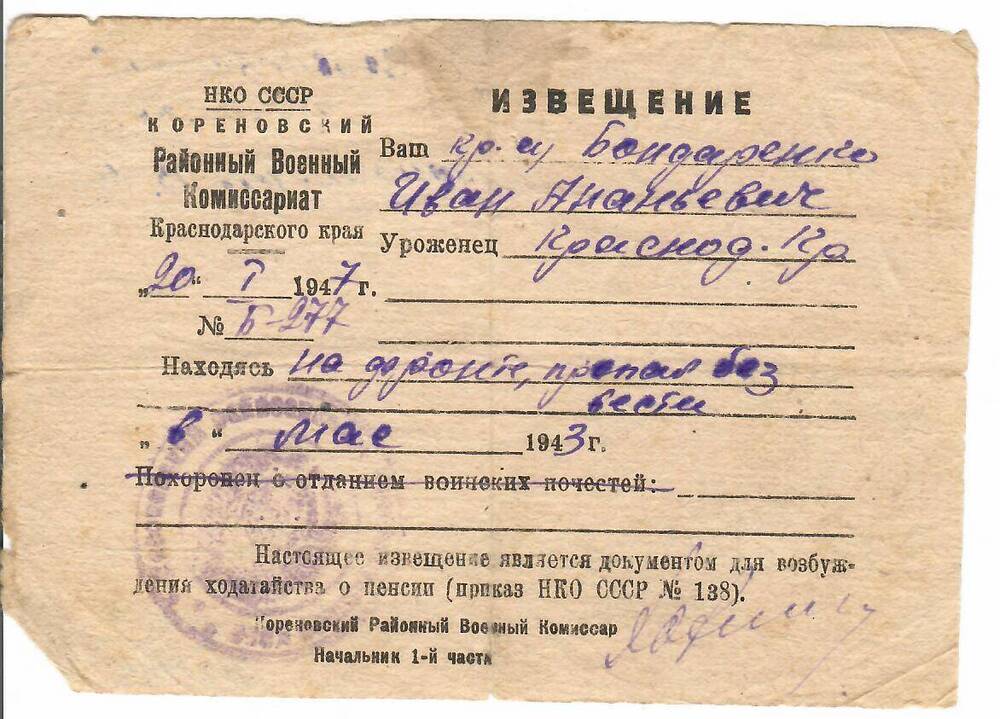 НКО СССР
КОРЕНОВСКИЙ
Районный Военный
Комиссариат
Краснодарского края
„20“ I 1947 г.
№ Б-277
ИЗВЕЩЕНИЕ
Ваш кр-ц Бондаренко
Иван Ананьевич
Уроженец Краснод. Кр
Находясь на фронте, пропал без
вести
„в“ мае 1943 г.
Похоронен с отданием воинских почестей:
Настоящее извещение является документом для возбуж-
дения ходатайства о пенсии (приказ НКО СССР № 138).
Кореновский Районный Военный Комиссар
Начальник 1-й части